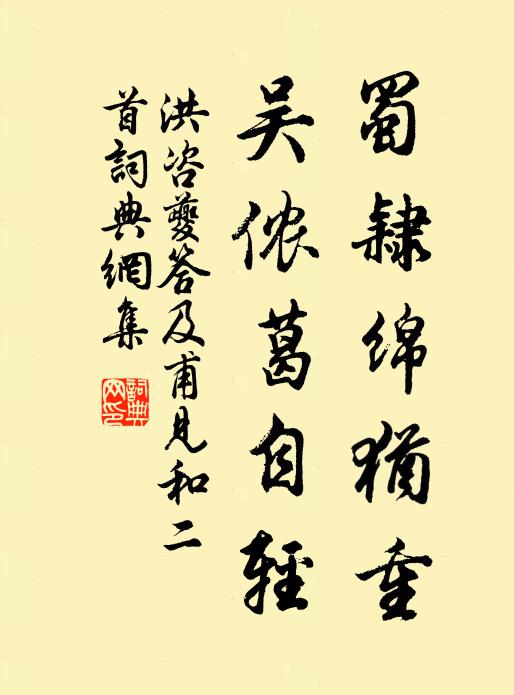 蜀隸綿猶重
吴侬葛自輕
洪咨夔答及甫見和二
首詞典網集
詞典
网印